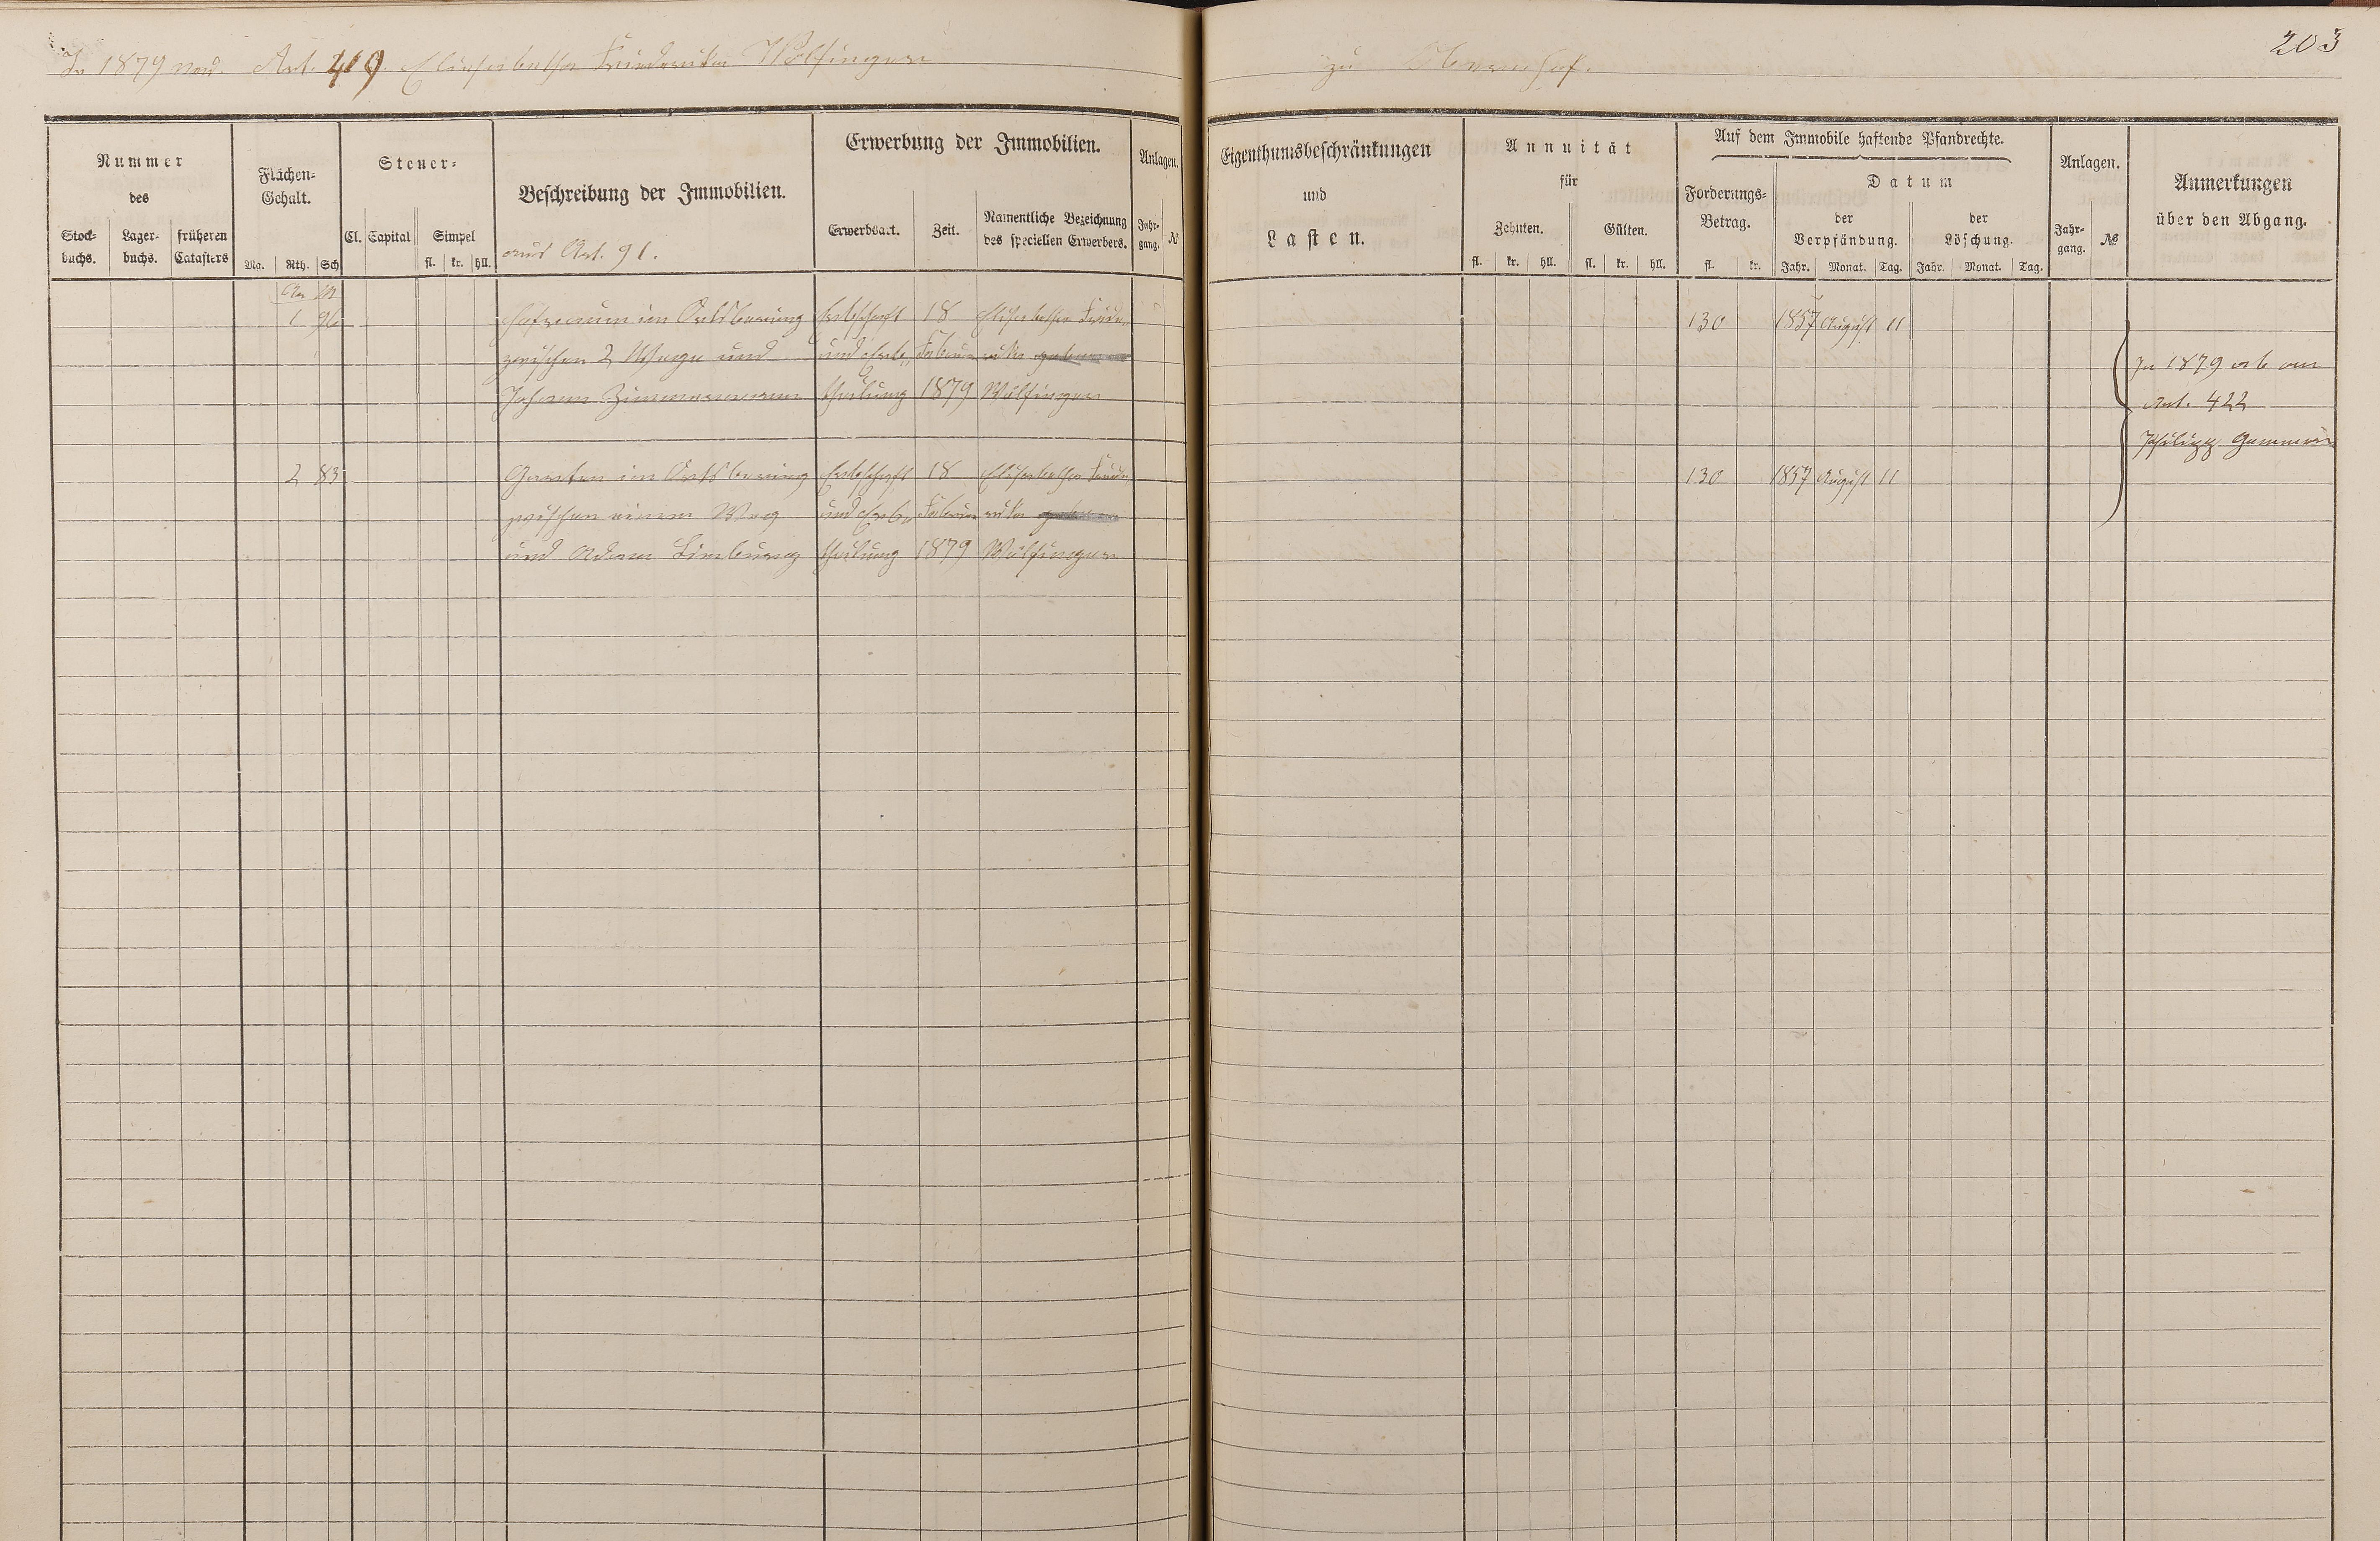 In 1879 neu. Art. 419. Elisabetha Friederike Wölfinger
zu Obernhof.
203
Nummer
des
Stock-
buchs.
Lager-
buchs.
früheren
Catasters
Flächen-
Gehalt.
Mg. Rth. Sch
Steuer-
Cl. Capital Simpel
fl. kr. hll.
Beschreibung der Immobilien.
aus Art. 91.
Erwerbung der Immobilien.
Erwerbsart. Zeit.
Namentliche Bezeichnung
des speciellen Erwerbers.
Anlagen.
Jahr-
gang. №
Eigenthumsbeschränkungen
und
Lasten.
Annuität
für
Zehnten. Gülten.
fl. kr. hll. fl. kr. hll.
Auf dem Immobile haftende Pfandrechte.
Forderungs-
Betrag.
fl. kr.
Datum
der
Verpfändung.
der
Löschung.
Jahr. Monat. Tag. Jahr. Monat. Tag.
Anlagen.
Jahr-
gang. №
Anmerkungen
über den Abgang.
Ar M
1 96 Hofraum im Ortsbering Erbschaft 18 Elisabetha Friede 130 1857 August 11
zwischen 2 Wege und und Erb- Februar rike
Johann Zimmermann theilung 1879 Wölfinger
In 1879 ab an
Art. 422
Philipp
2 83 Garten im Ortsbering Erbschaft 18 Elisabetha Friede 130 1857 August 11
zwischen einem Weg und Erb- Februar rike
und Adam Limburg theilung 1879 Wölfinger